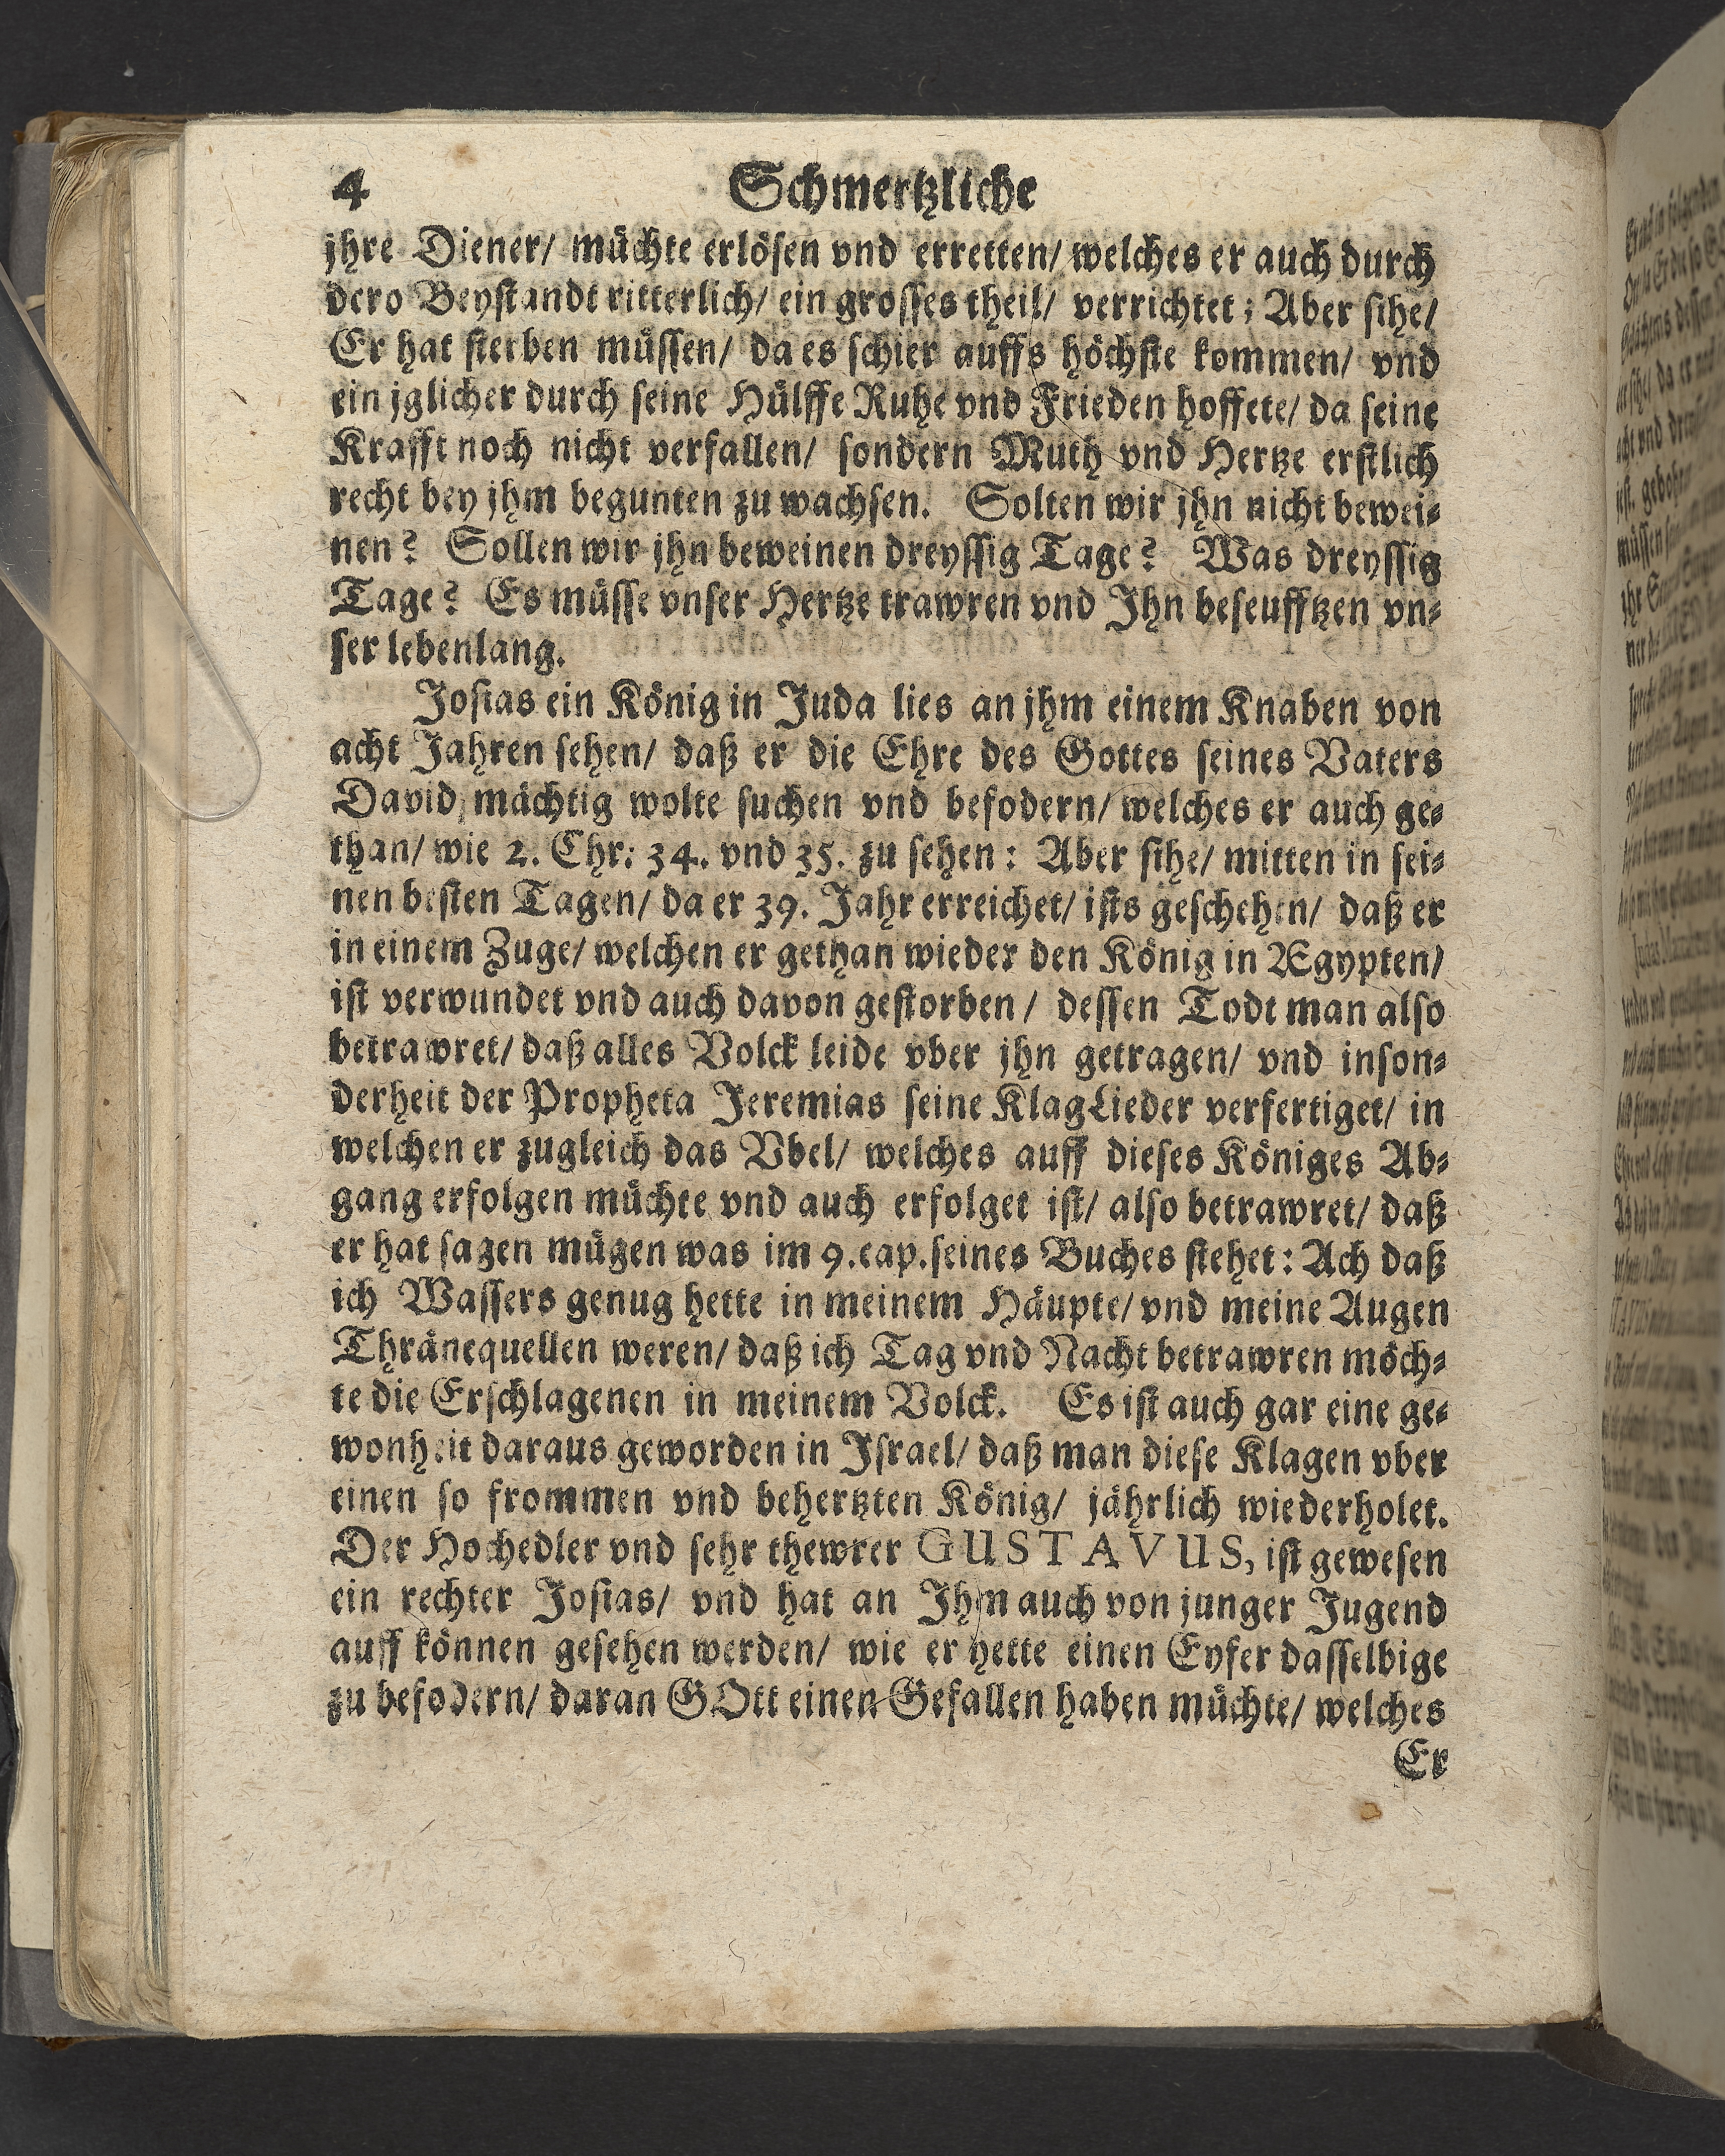 4 Schmertzliche
jhre Diener/ müchte erlösen vnd erretten/ welches er auch durch
dero Beystandt ritterlich/ ein grosses theil/ verrichtet; Aber sihe/
Er hat sterben müssen/ da es schier auffs höchste kommen/ vnd
ein jglicher durch seine Hülffe Ruhe vnd Frieden hoffete/ da seine
Krafft noch nicht verfallen/ sondern Muth vnd Hertze erstlich
recht bey jhm begunten zu wachsen. Solten wir jhn nicht bewei-
nen? Sollen wir jhn beweinen dreyssig Tage? Was dreyssig
Tage? Es müsse vnser Hertze trawren vnd Ihn beseufftzen vn-
ser lebenlang.
Josias ein König in Juda lies an jhm einem Knaben von
acht Jahren sehen/ daß er die Ehre des Gottes seines Vaters
David mächtig wolte suchen vnd befodern/ welches er auch ge-
than/ wie 2. Chr: 34. vnd 35. zu sehen: Aber sihe/ mitten in sei-
nen besten Tagen/ da er 39. Jahr erreichet/ ists geschehen/ daß er
in einem Zuge/ welchen er gethan wieder den König in Ægypten/
ist verwundet vnd auch davon gestorben/ dessen Todt man also
betrawret/ daß alles Volck leide vber jhn getragen/ vnd inson-
derheit der Propheta Jeremias seine KlagLieder verfertiget/ in
welchen er zugleich das Vbel/ welches auff dieses Königes Ab-
gang erfolgen müchte vnd auch erfolget ist/ also betrawret/ daß
er hat sagen mügen was im 9. cap. seines Buches stehet: Ach daß
ich Wassers genug hette in meinem Häupte/ vnd meine Augen
Thränequellen weren/ daß ich Tag vnd Nacht betrawren möch-
te die Erschlagenen in meinem Volck. Es ist auch gar eine ge-
wonheit daraus geworden in Israel/ daß man diese Klagen vber
einen so frommen vnd behertzten König/ jährlich wiederholet.
Der Hochedler vnd sehr thewrer GUSTAVUS, ist gewesen
ein rechter Josias/ vnd hat an Ihm auch von junger Jugend
auff können gesehen werden/ wie er hette einen Eyfer dasselbige
zu befodern/ daran GOtt einen Gefallen haben müchte/ welches
Er